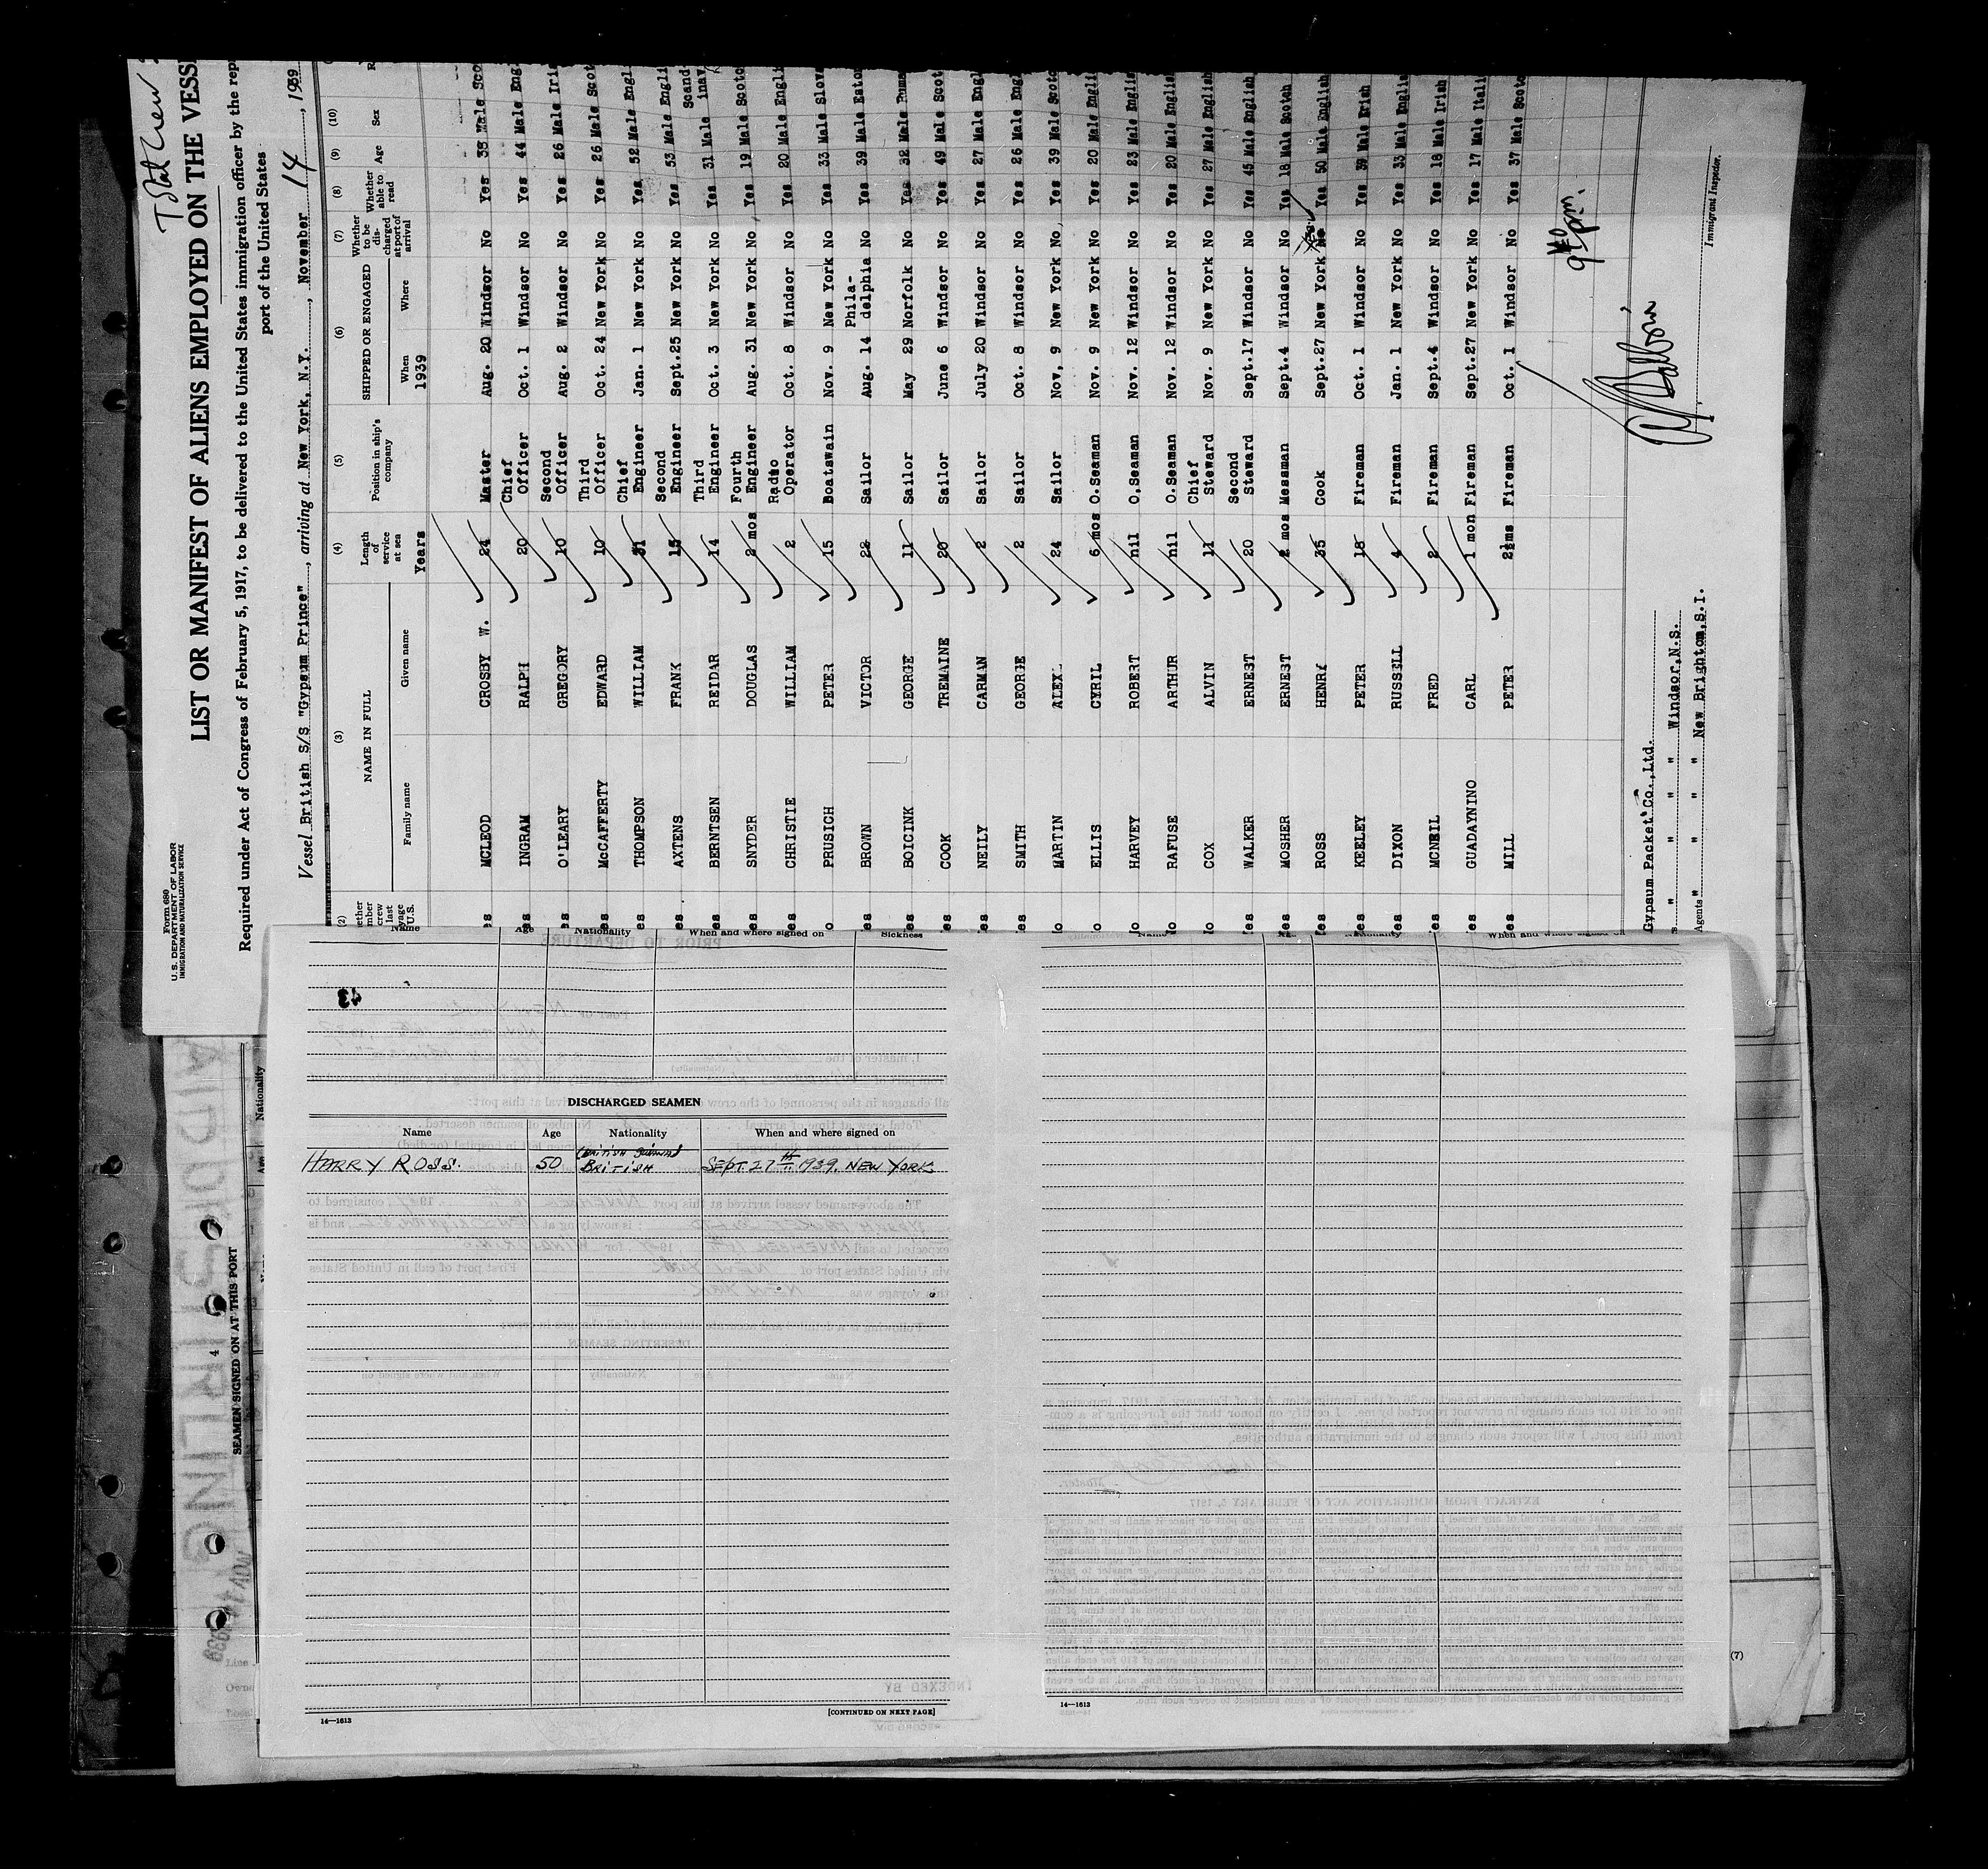 T Stat Crew
Form 680
U. S. DEPARTMENT OF LABOR
IMMIGRATION AND NATURALIZATION SERVICE
LIST OR MANIFEST OF ALIENS EMPLOYED ON THE VESS
Required under Act of Congress of February 5, 1917, to be delivered to the United States immigration officer by the rep
port of the United States
Vessel British S/S "Gypsum Prince", arriving at New York, N.Y., November 14, 1939
(2) (3) (4) (5) (6) (7) (8) (9) (10)
NAME IN FULL Length of service at sea Position in ship's company SHIPPED OR ENGAGED Whether to be discharged at port of arrival Whether able to read Age Sex
Family name Given name Years When Where
1939
es MCLEOD CROSBY W. 24 Master Aug. 20 Windsor No Yes 38 Male Sco
es INGRAM RALPH 20 Chief Officer Oct. 1 Windsor No Yes 44 Male Eng
es O'LEARY GREGORY 10 Second Officer Aug. 2 Windsor No Yes 26 Male Iri
es McCAFFERTY EDWARD 10 Third Officer Oct. 24 New York No Yes 26 Male Scot
es THOMPSON WILLIAM 31 Chief Engineer Jan. 1 New York No Yes 52 Male Engli
es AXTENS FRANK 15 Second Engineer Sept.25 New York No Yes 53 Male Engli
es BERNTSEN REIDAR 14 Third Engineer Oct. 3 New York No Yes 31 Male Scand- inav
es SNYDER DOUGLAS 2 mos Fourth Engineer Aug. 31 New York No Yes 19 Male Scotc
es CHRISTIE WILLIAM 2 Radio Operator Oct. 8 Windsor No Yes 20 Male Engli
o PRUSICH PETER 15 Boatswain Nov. 9 New York No Yes 33 Male Slova
es BROWN VICTOR 22 Sailor Aug. 14 Phila- delphia No Yes 39 Male Esto
es BOICINK GEORGE 11 Sailor May 29 Norfolk No Yes 32 Male Ruma
es COOK TREMAINE 20 Sailor June 6 Windsor No Yes 49 Male Scot
es NEILY CARMAN 2 Sailor July 20 Windsor No Yes 27 Male Engl
es SMITH GEORGE 2 Sailor Oct. 8 Windsor No Yes 26 Male Eng
o MARTIN ALEX 24 Sailor Nov, 9 New York No, Yes 39 Male Scotc
o ELLIS CYRIL 6 mos O.Seaman Nov. 9 New York No Yes 20 Male Engli
o HARVEY ROBERT nil O.Seaman Nov. 12 Windsor No Yes 23 Male Englis
o RAFUSE ARTHUR nil O.Seaman Nov. 12 Windsor No Yes 20 Male English
o COX ALVIN 11 Chief Steward Nov. 9 New York No Yes 27 Male English
es WALKER ERNEST 20 Second Steward Sept.17 Windsor No Yes 45 Male English
es MOSHER ERNEST 2 mos Messman Sept.4 Windsor No Yes 18 Male Scotch
es ROSS HENRY 35 Cook Sept.27 New York No Yes Yes 50 Male English
es KEELEY PETER 18 Fireman Oct. 1 Windsor No Yes 39 Male Irish
es DIXON RUSSELL 4 Fireman Jan. 1 New York No Yes 33 Male Englis
es MCNEIL FRED 2 Fireman Sept.4 Windsor No Yes 18 Male Irish
es GUADAYNINO CARL 1 mon Fireman Sept.27 New York No Yes 17 Male Itali
es MILL PETER 2½ms Fireman Oct. 1 Windsor No Yes 37 Male Scotc
9 40 pm.
Gypsum Packet Co.,Ltd.
" " " " Windsor,N.S.
Agents " " " " New Brighton,S.I.
Immigrant Inspector.
Name Age Nationality When and where signed on Sickness
43
DISCHARGED SEAMEN
Name Age Nationality When and where signed on
HARRY ROSS. 50 (BRITISH GUIANA) BRITISH SEPT. 27TH 1939. NEW YORK
14—1613
[CONTINUED ON NEXT PAGE]
Name Nationality When and where signed on
14—1613
4
SEAMEN SIGNED ON AT THIS PORT
Nationality
Age
Line
Owne
(7)